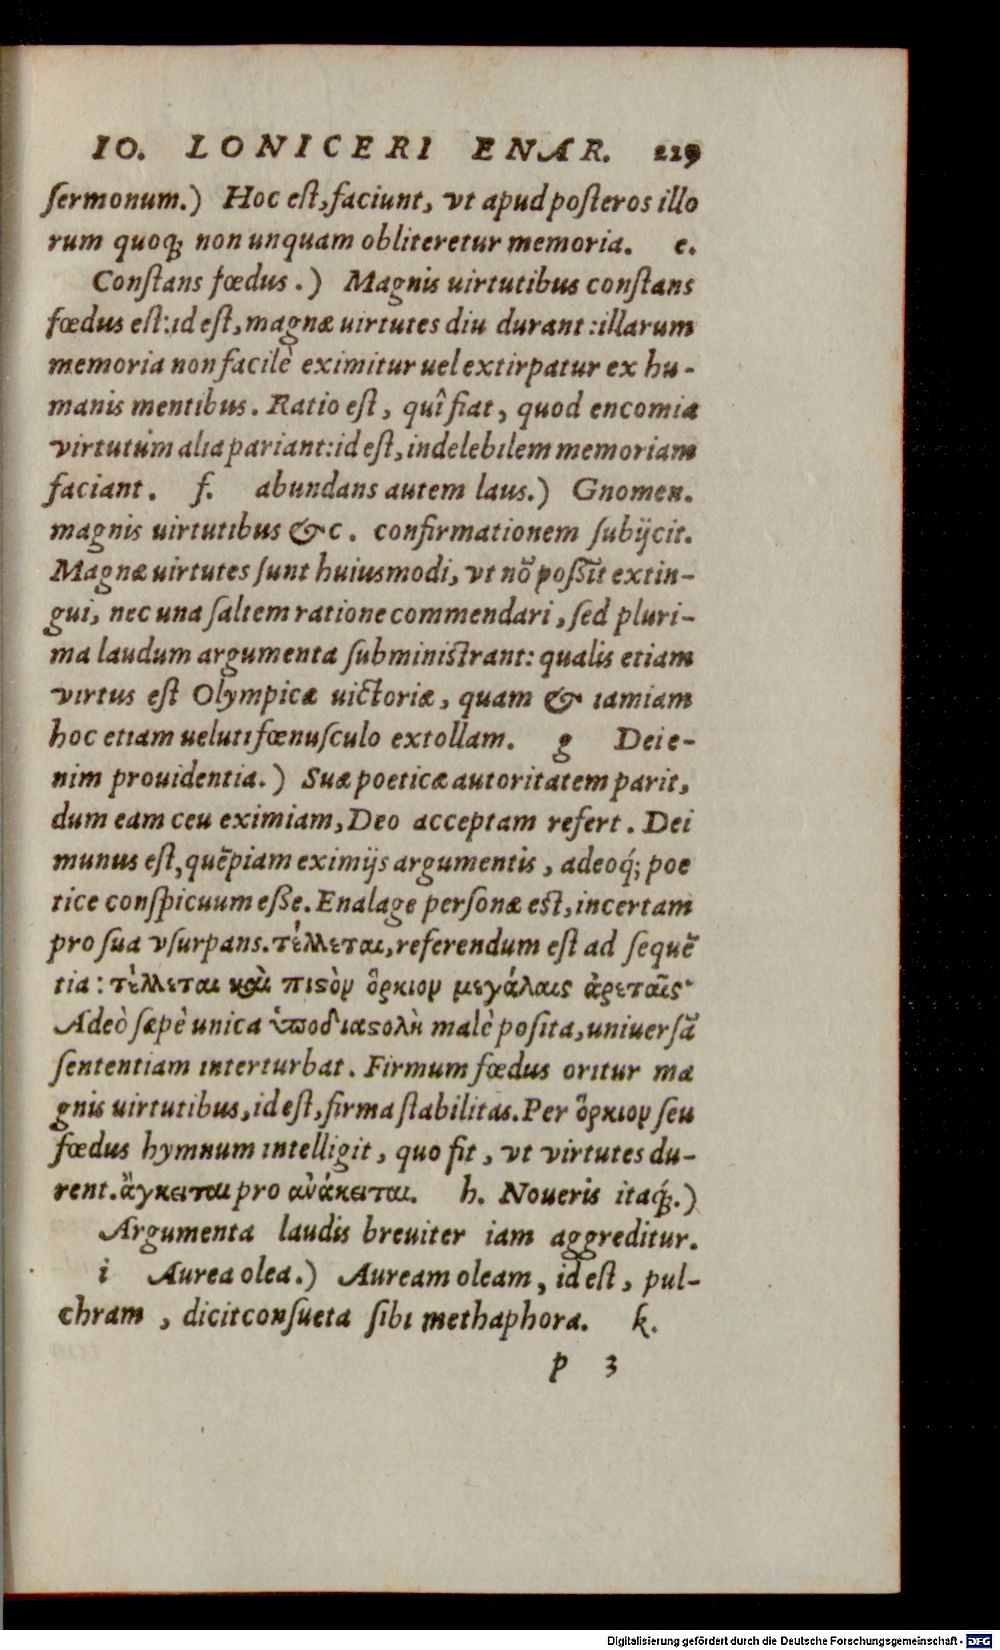 IO. LONICERI ENAR. 229
ſermonum.) Hoc eſt, faciunt, vt apud poſteros illo
rum quoq; non unquam obliteretur memoria. e.
Conſtans fœdus.) Magnis uirtutibus conſtans
fœdus eſt: id eſt, magnæ uirtutes diu durant: illarum
memoria non facilè eximitur uel extirpatur ex hu-
manis mentibus. Ratio eſt, quî fiat, quod encomia
virtutùm alia pariant: id eſt, indelebilem memoriam
faciant. f. abundans autem laus.) Gnomen.
magnis uirtutibus &c. confirmationem ſubijcit.
Magnæ uirtutes ſunt huiusmodi, vt nõ poſſĩt extin-
gui, nec una ſaltem ratione commendari, ſed pluri-
ma laudum argumenta ſubminiſtrant: qualis etiam
virtus eſt Olympicæ uictoriæ, quam & iamiam
hoc etiam ueluti fœnuſculo extollam. g Dei e-
nim prouidentia.) Suæ poeticæ autoritatem parit,
dum eam ceu eximiam, Deo acceptam refert. Dei
munus eſt, quẽpiam eximijs argumentis, adeoq́; poe
tice conſpicuum eſſe. Enalage perſonæ eſt, incertam
pro ſua vſurpans. τέλλεται, referendum eſt ad ſequẽ
tia: τέλλεται καὶ πιϛὸν ὅρκιον μεγάλαις ἀρεταῖς·
Adeò ſæpè unica ὑποδιαϛολὴ malè poſita, uniuerſã
ſententiam interturbat. Firmum fœdus oritur ma
gnis uirtutibus, id eſt, firma ſtabilitas. Per ὅρκιον ſeu
fœdus hymnum intelligit, quo fit, vt virtutes du-
rent. ἄγκειται pro ἀνάκειται. h. Noueris itaq́;.)
Argumenta laudis breuiter iam aggreditur.
i Aurea olea.) Auream oleam, id eſt, pul-
chram, dicit conſueta ſibi methaphora. k.
p 3
Digitalisierung gefördert durch die Deutsche Forschungsgemeinschaft - DFG